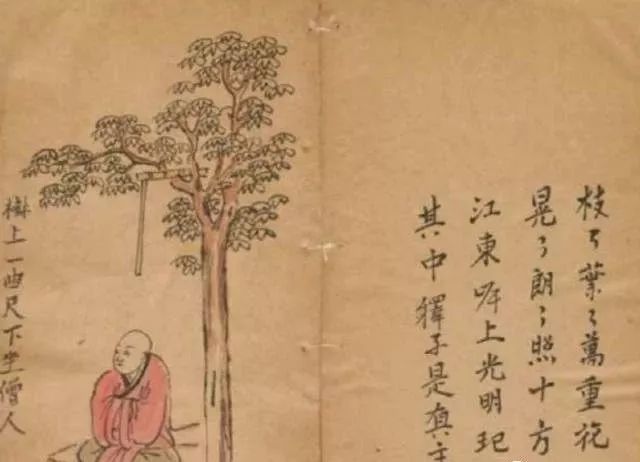 枝々葉々萬重
晃々朗々照十方
江東岸上光明起
其中釋子是真主
樹上一曲尺下坐僧人